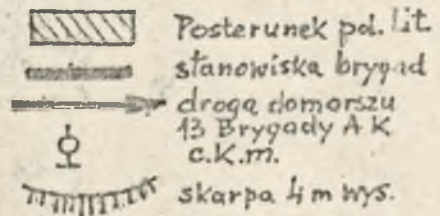 Posterunek pol. lit.
stanowiska brygad
droga domarszu
13 Brygady A K
c.k.m.
skarpa 4 m wys.